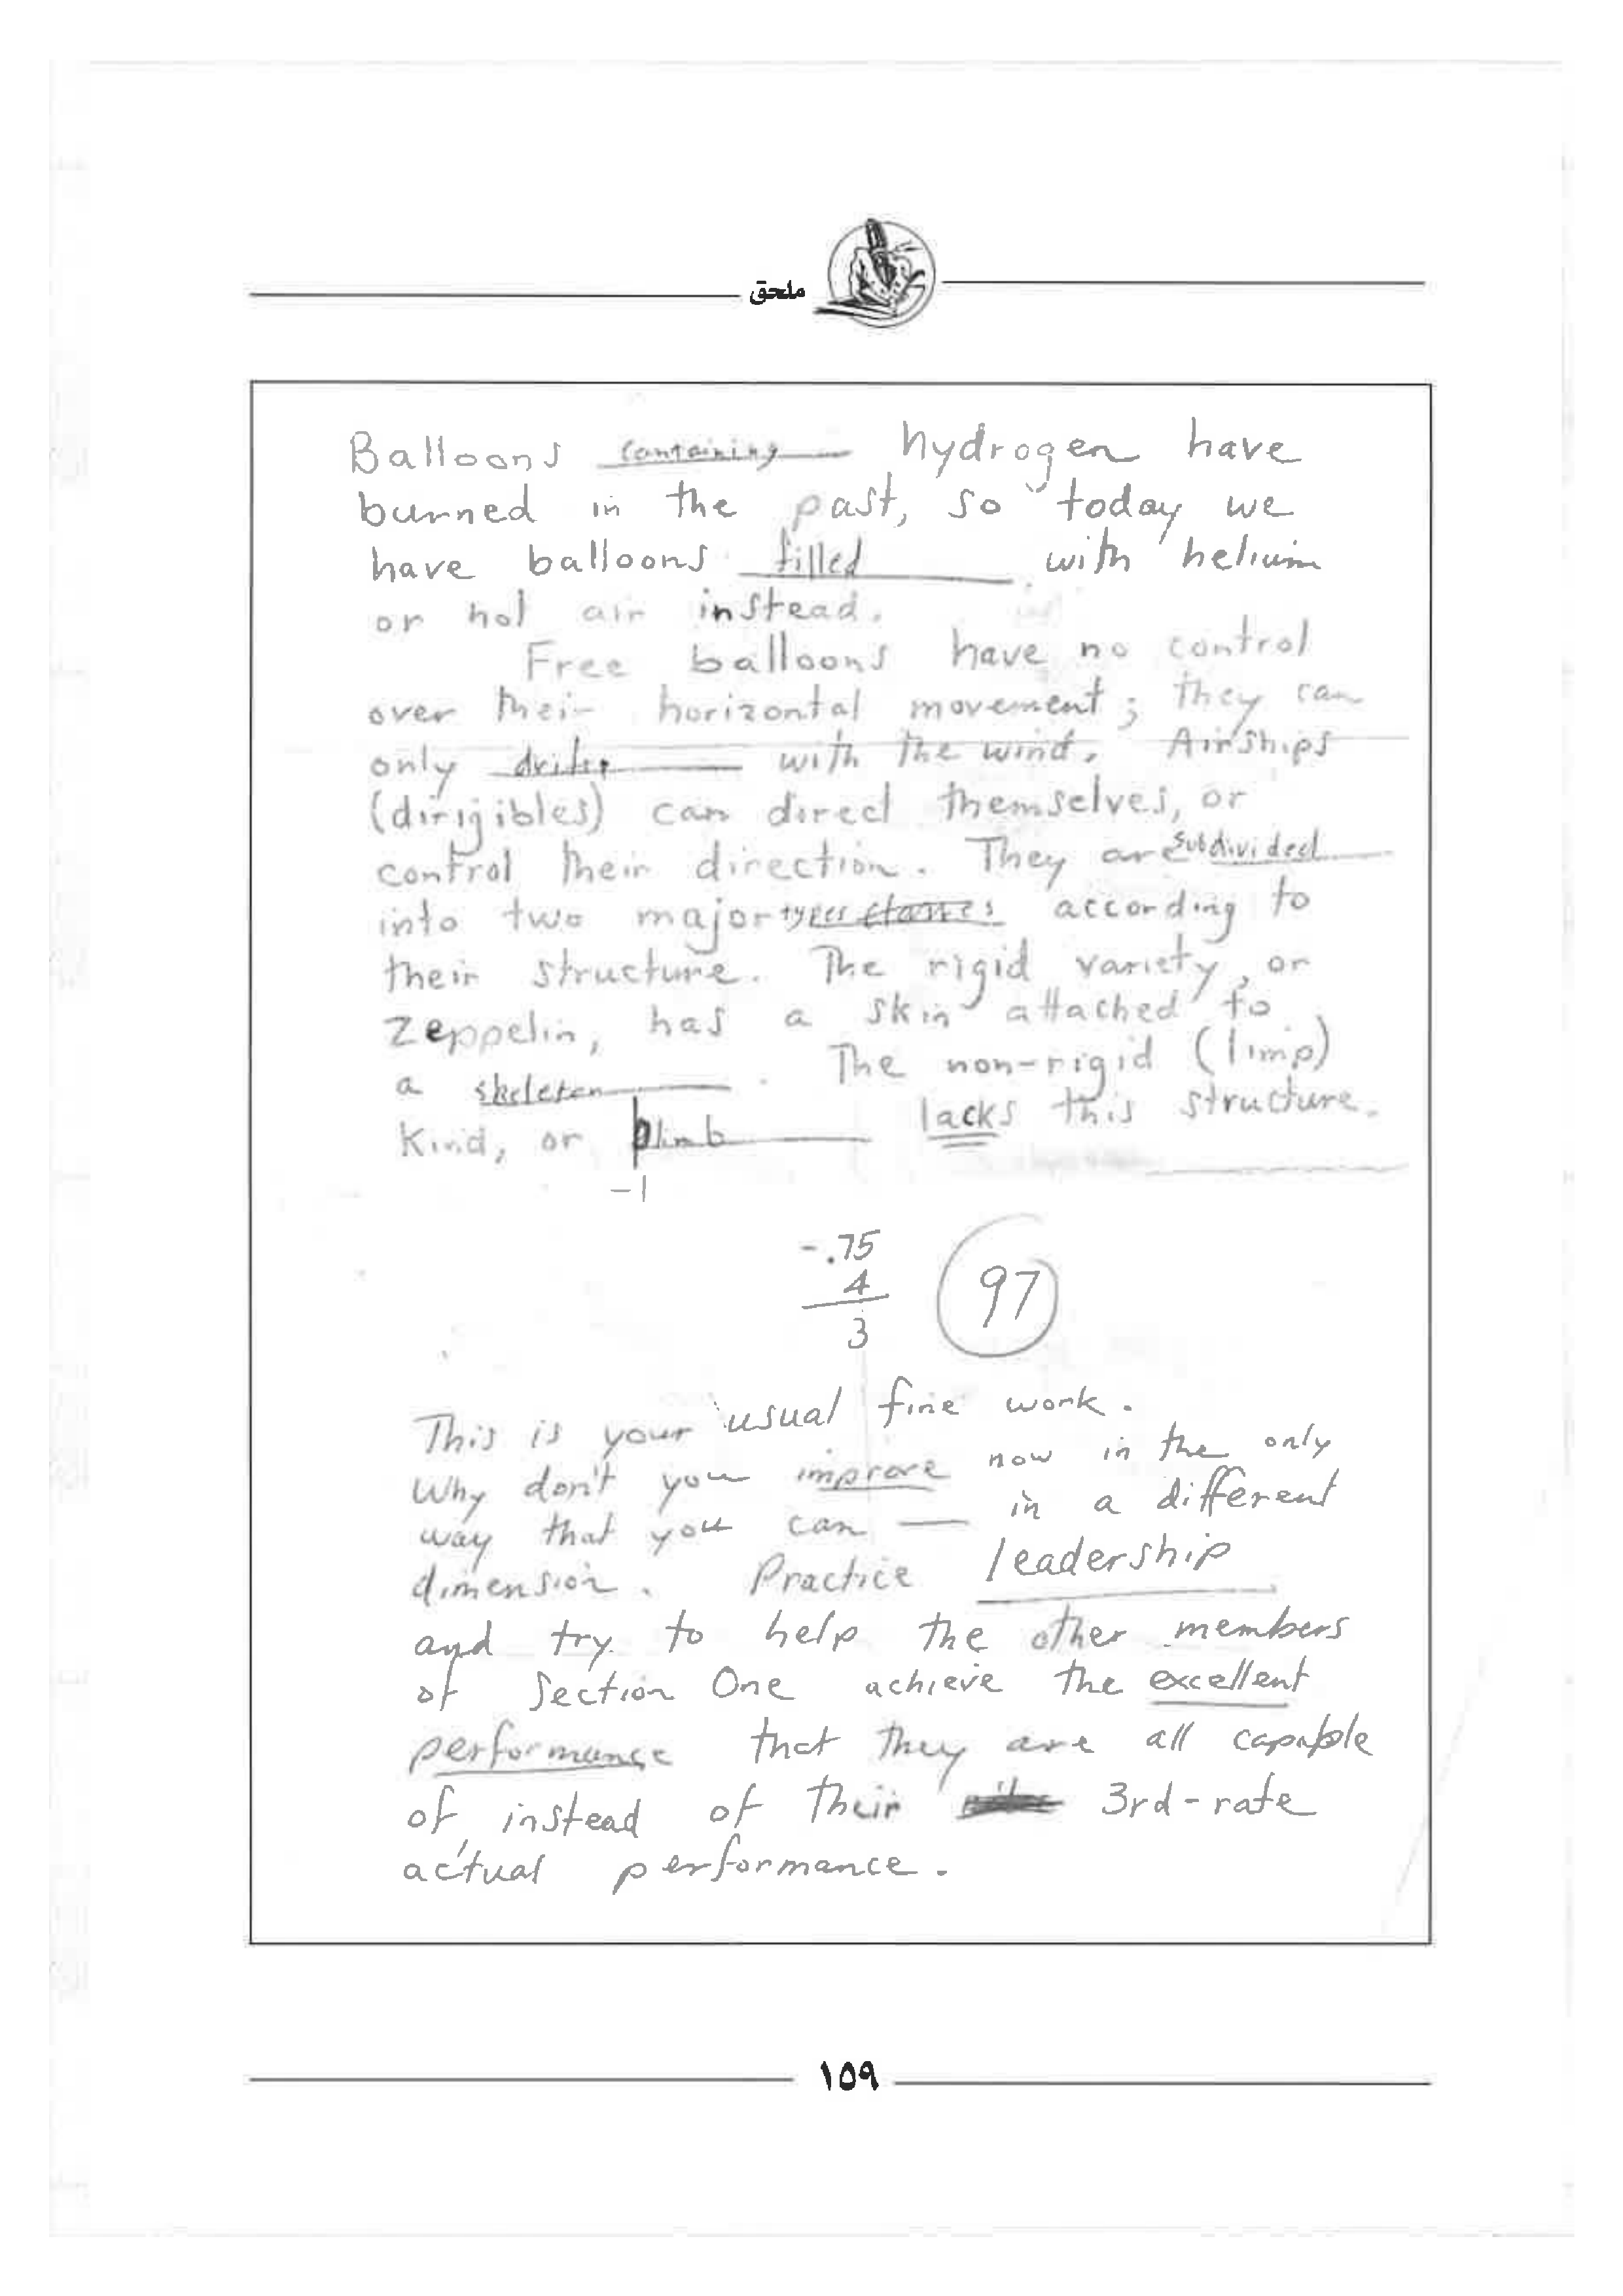 ملحق
Balloons containing hydrogen have
burned in the past, so today we
have balloons filled with helium
or hot air instead.
Free balloons have no control
over their horizontal movement; they can
only with the wind. Airships
(dirigibles) can direct themselves, or
control their direction. They are subdivided
into two major types classes according to
their structure. The rigid variety, or
zeppelin, has a skin attached to
a skeleton. The non-rigid (limp)
kind, or blimb lacks this structure.
-1
-.75
4
3
97
This is your usual fine work.
Why don't you improve now in the only
way that you can — in a different
dimension. Practice leadership
and try to help the other members
of Section One achieve the excellent
performance that they are all capable
of, instead of their 3rd-rate
actual performance.
١٥٩